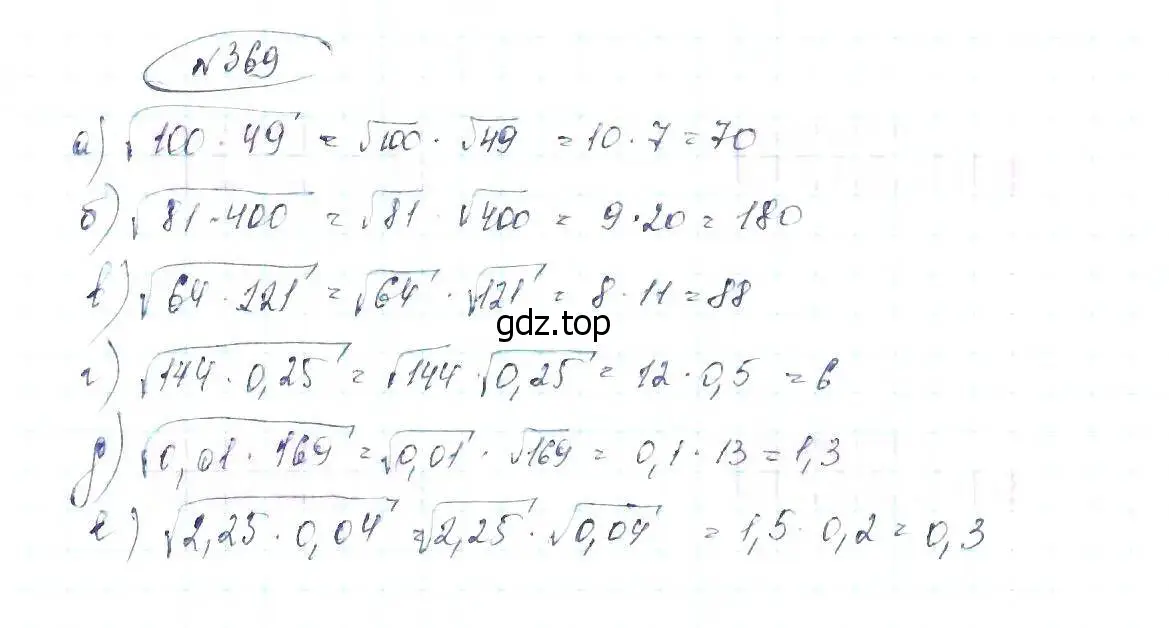 №369
а) √(100 · 49) = √100 · √49 = 10 · 7 = 70
б) √(81 · 400) = √81 · √400 = 9 · 20 = 180
в) √(64 · 121) = √64 · √121 = 8 · 11 = 88
gdz.top
г) √(144 · 0,25) = √144 · √0,25 = 12 · 0,5 = 6
д) √(0,01 · 169) = √0,01 · √169 = 0,1 · 13 = 1,3
е) √(2,25 · 0,04) = √2,25 · √0,04 = 1,5 · 0,2 = 0,3